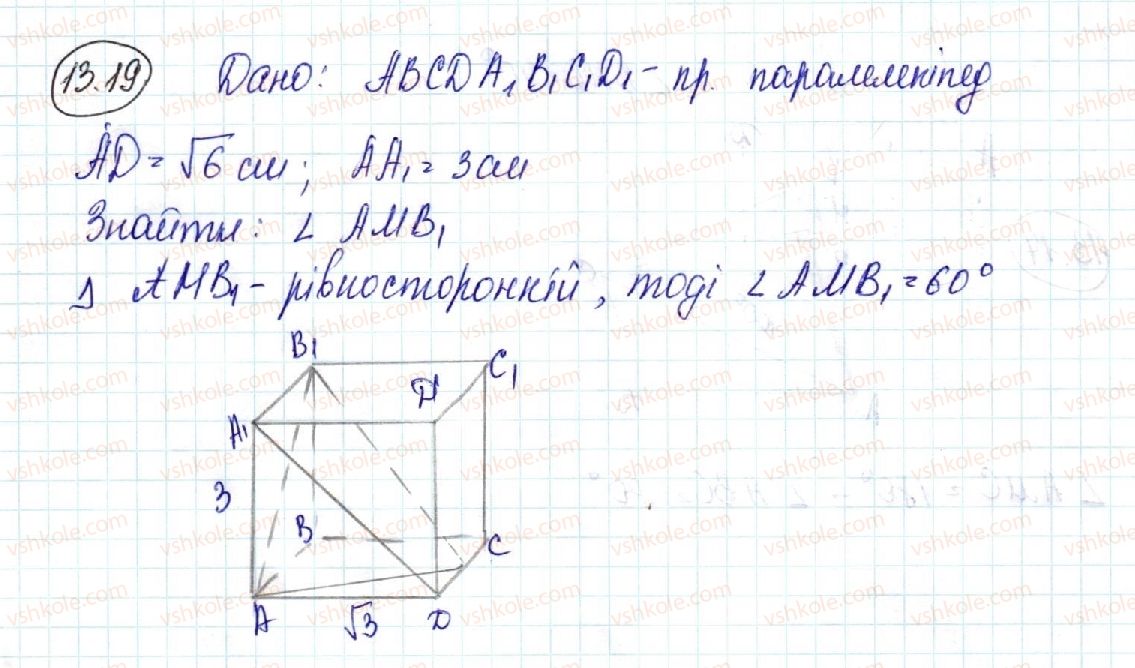 13.19 Дано: ABCDA₁B₁C₁D₁ - пр. паралелепіпед
AD = √6 см; AA₁ = 3 см
Знайти: ∠ AMB₁
Δ AMB₁ - рівносторонній, тоді ∠ AMB₁ = 60°
B₁
C₁
D
A₁
3
B
C
A
√3
D
vshkole.com